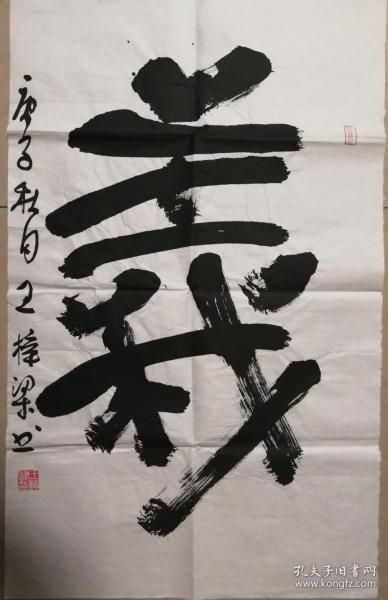 義
庚子秋月王樟梁书
孔夫子旧书网
www.kongfz.com